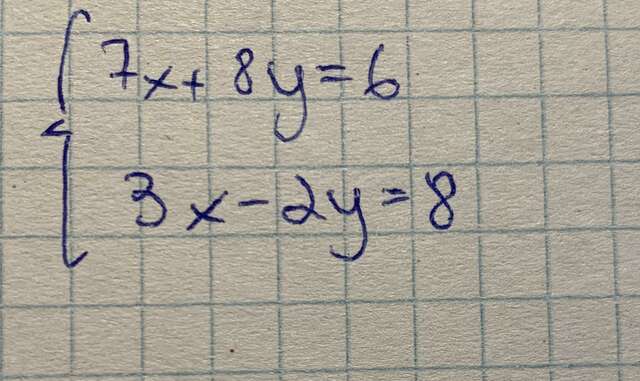 7x+8y=6
3x-2y=8